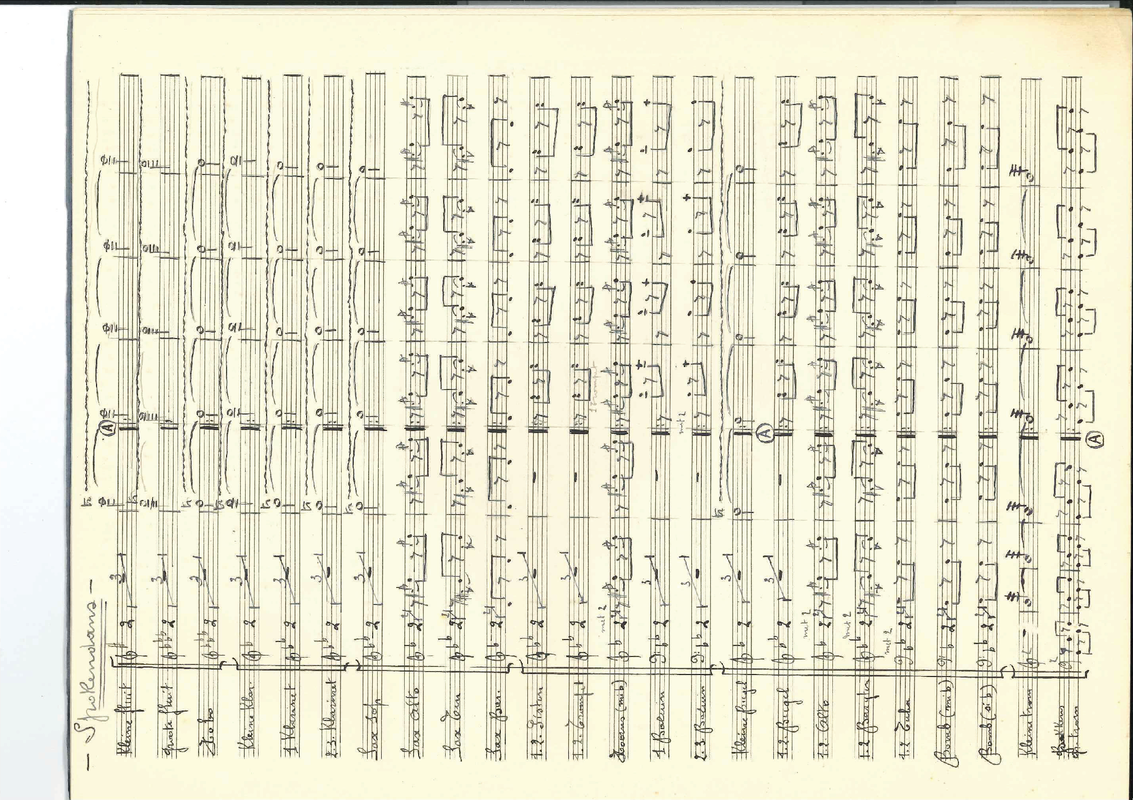 — Spokendans —
Kleine fluit
grote fluit
Hobo
Kleine Klar.
1 Klarinet
2.3 Klarinet
Sax Sop
Sax Alto
Sax Ten
Sax Bar.
1.2. Piston
1.2. Trompet
Hoorns (mi b)
1 Bazuin
2.3 Bazuin
Kleine bugel
1.2. Bugel
1.2. Alto
1.2 Baryton
1.2 Tuba
Bomb (mi b)
Bomb (si b)
Kleine trom
gr. trom
met 2
met 2
met 2
met 2
met 2
tr
tr
tr
tr
tr
tr
tr
tr
3
3
3
3
3
3
3
3
3
3
3
3
3
A
A
A